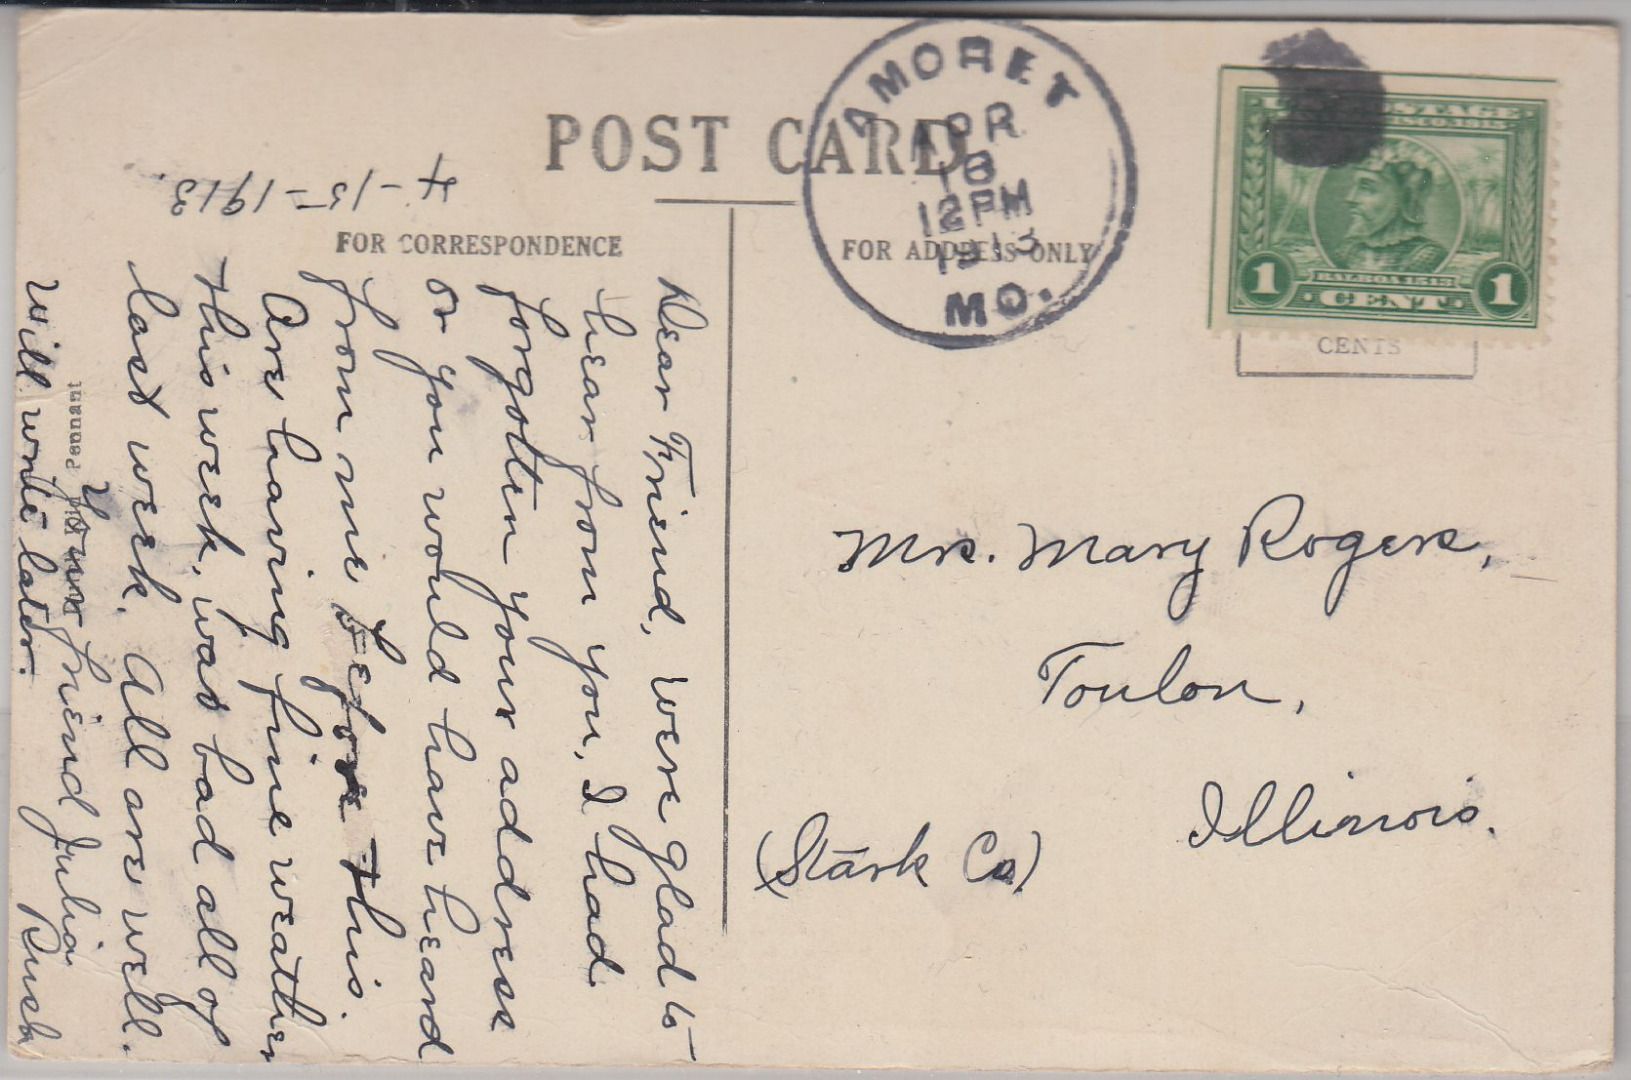 POST CARD
FOR CORRESPONDENCE
FOR ADDRESS ONLY
AMORET
APR
12 PM
1913
MO.
U.S. POSTAGE
BALBOA 1513
1 CENT 1
CENTS
4-15-1913.
Dear Friend, were glad to
hear from you, I had
forgotten your address
or you would have heard
from me before this.
Are having fine weather
this week, was bad all of
last week. All are well.
Your friend Julia
Rush
Will write later.
Pennant
Mrs. Mary Rogers,
Toulon,
Illinois.
(Stark Co.)